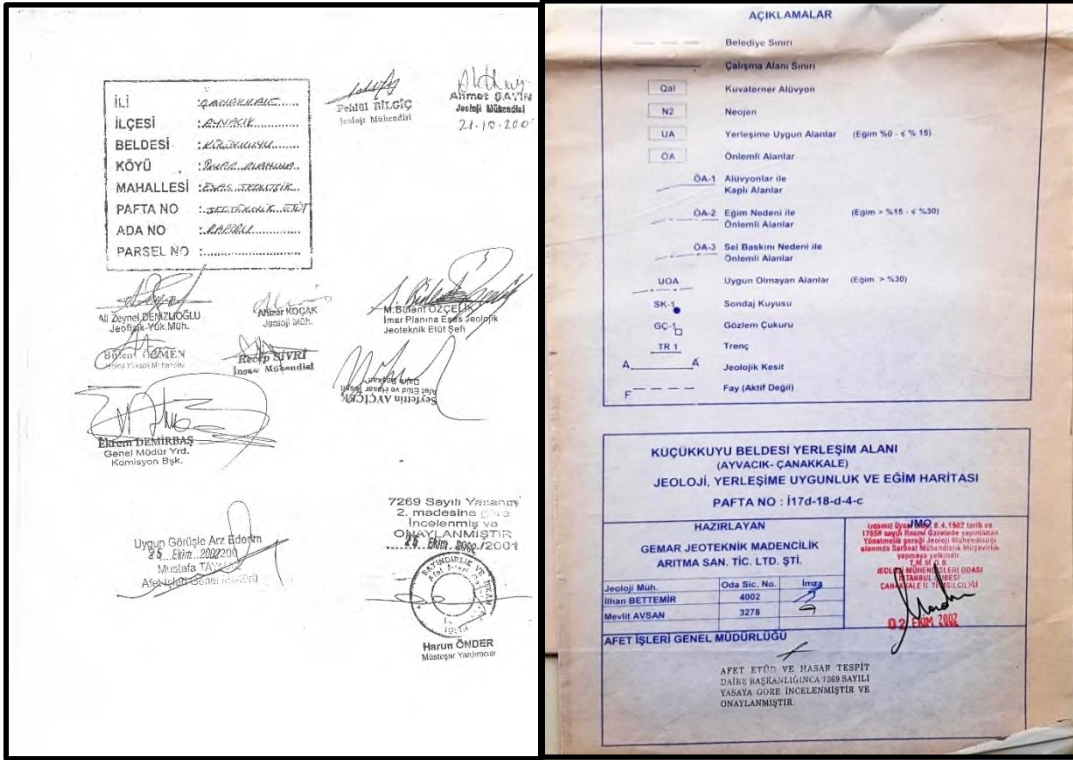 İLİ : ÇANAKKALE
İLÇESİ : AYVACIK
BELDESİ : KÜÇÜKKUYU
KÖYÜ : İMAR PLANINA
MAHALLESİ : ESAS JEOLOJİK
PAFTA NO : JEOTEKNİK ETÜT
ADA NO : RAPORU
PARSEL NO :
Pehlül BİLGİÇ
Jeoloji Mühendisi
Ahmet
Jeoloji Mühendisi
21.10.200
Ali Zeynel DENİZLİOĞLU
Jeofizik Yük.Müh.
KOÇAK
Jeoloji Müh.
M.Bülent ÖZÇELİK
İmar Planına Esas Jeolojik
Jeoteknik Etüt Şefi
Bülent ÖZMEN
Jeoloji Yüksek Mühendisi
Recep SİVRİ
İnşaat Mühendisi
Seyfettin AVCIÇEK
Afet Etüd ve Hasar Tespit
Daire Başkanı
Ekrem DEMİRBAŞ
Genel Müdür Yrd.
Komisyon Bşk.
Uygun Görüşle Arz Ederim
25 Ekim 2002
Mustafa
Afet İşleri Genel Müdürü
7269 Sayılı Yasanın
2. madesine göre
İncelenmiş ve
ONAYLANMIŞTIR
Ekim 2002
Harun ÖNDER
Müsteşar Yardımcısı
AÇIKLAMALAR
Belediye Sınırı
Çalışma Alanı Sınırı
Qal Kuvaterner Alüvyon
N2 Neojen
UA Yerleşime Uygun Alanlar (Eğim %0 - ≤ % 15)
ÖA Önlemli Alanlar
ÖA-1 Alüvyonlar ile
Kaplı Alanlar
ÖA-2 Eğim Nedeni ile (Eğim > %15 - ≤ %30)
Önlemli Alanlar
ÖA-3 Sel Baskını Nedeni ile
Önlemli Alanlar
UOA Uygun Olmayan Alanlar (Eğim > %30)
SK-1 Sondaj Kuyusu
GÇ-1 Gözlem Çukuru
TR 1 Trenç
A A' Jeolojik Kesit
F Fay (Aktif Değil)
KÜÇÜKKUYU BELDESİ YERLEŞİM ALANI
(AYVACIK- ÇANAKKALE)
JEOLOJİ, YERLEŞİME UYGUNLUK VE EĞİM HARİTASI
PAFTA NO : İ17d-18-d-4-c
HAZIRLAYAN
GEMAR JEOTEKNİK MADENCİLİK
ARITMA SAN. TİC. LTD. ŞTİ.
Jeoloji Müh. Oda Sic. No. İmza
İlhan BETTEMİR 4002
Mevlit AVSAN 3278
JMO
Odamız üyesi 8.4.1982 tarih ve
17658 sayılı Resmi Gazetede yayınlanan
Yönetmelik gereği Jeoloji Mühendisliği
alanında Serbest Mühendislik Müşavirlik
yapmaya yetkilidir.
T.M.M.O.B.
JEOLOJİ MÜHENDİSLERİ ODASI
İSTANBUL ŞUBESİ
ÇANAKKALE İL TEMSİLCİLİĞİ
02 EKİM 2002
AFET İŞLERİ GENEL MÜDÜRLÜĞÜ
AFET ETÜD VE HASAR TESPİT
DAİRE BAŞKANLIĞINCA 7269 SAYILI
YASAYA GÖRE İNCELENMİŞTİR VE
ONAYLANMIŞTIR.